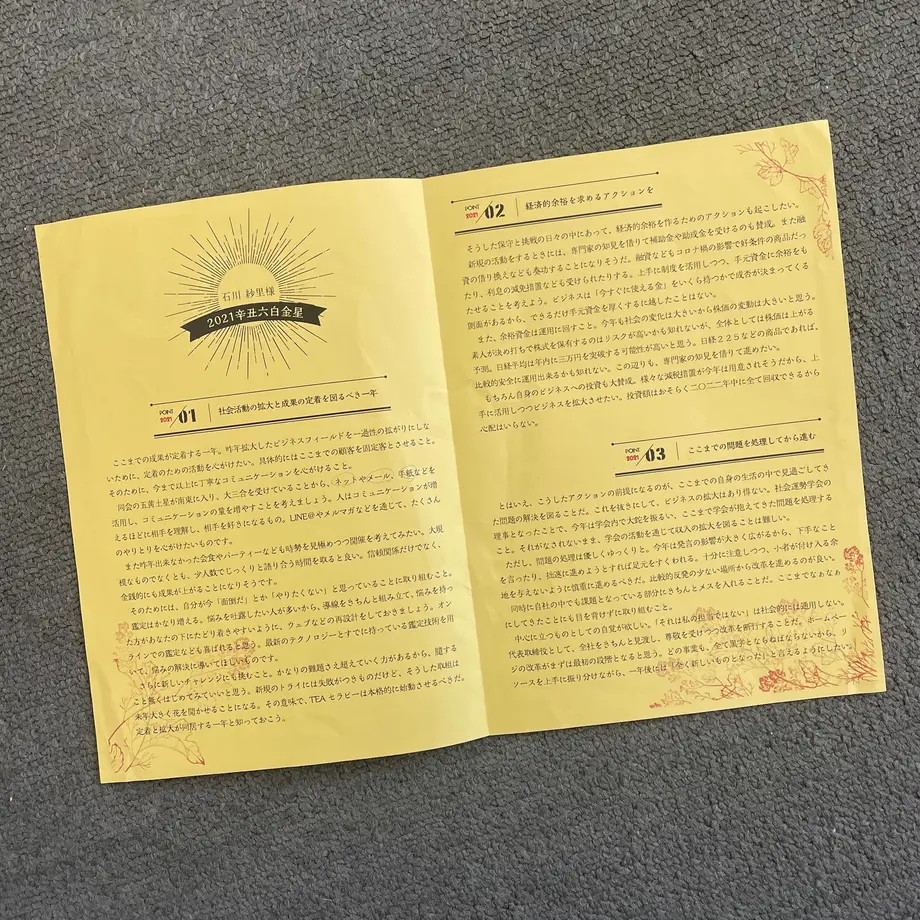 石川 紗里様
2021辛丑六白金星
POINT 2021 01 社会活動の拡大と成果の定着を図るべき一年
ここまでの成果が定着する一年。昨年拡大したビジネスフィールドを一過性の拡がりにしな
いために、定着のための活動を心がけたい。具体的にはここまでの顧客を固定客とさせること。
そのために、今まで以上に丁寧なコミュニケーションを心がけること。
同会の五黄土星が南東に入り、大三合を受けていることから、ネットやメール、手紙などを
活用し、コミュニケーションの量を増やすことを考えましょう。人はコミュニケーションが増
えるほどに相手を理解し、相手を好きになるもの。LINE@やメルマガなどを通じて、たくさん
のやりとりを心がけたいものです。
また昨年出来なかった会食やパーティーなども時勢を見極めつつ開催を考えてみたい。大規
模なものでなくとも、少人数でじっくりと語り合う時間を取ると良い。信頼関係だけでなく、
金銭的にも成果が上がることになりそうです。
そのためには、自分が今「面倒だ」とか「やりたくない」と思っていることに取り組むこと。
鑑定はかなり増える。悩みを吐露したい人が多いから、導線をきちんと組み立て、悩みを持っ
た方があなたの下にたどり着きやすいように、ウェブなどの再設計をしておきましょう。オン
ラインでの鑑定なども喜ばれると思う。最新のテクノロジーとすでに持っている鑑定技術を用
いて、悩みの解決に導いてほしいものです。
さらに新しいチャレンジにも挑むこと。かなりの難題さえ超えていく力があるから、臆する
こと無くはじめてみていいと思う。新規のトライには失敗がつきものだけど、そうした取組は
来年大きく花を開かせることになる。その意味で、TEA セラピーは本格的に始動させるべきだ。
定着と拡大が同居する一年と知っておこう。
POINT 2021 02 経済的余裕を求めるアクションを
そうした保守と挑戦の日々の中にあって、経済的余裕を作るためのアクションも起こしたい。
新規の活動をするときには、専門家の知見を借りて補助金や助成金を受けるのも賛成。また融
資の借り換えなども奏功することになりそうだ。融資などもコロナ禍の影響で好条件の商品だっ
たり、利息の減免措置なども受けられたりする。上手に制度を活用しつつ、手元資金に余裕をも
たせることを考えよう。ビジネスは「今すぐに使える金」をいくら持つかで成否が決まってくる
側面があるから、できるだけ手元資金を厚くするに越したことはない。
また、余裕資金は運用に回すこと。今年も社会の変化は大きいから株価の変動は大きいと思う。
素人が決め打ちで株式を保有するのはリスクが高いかも知れないが、全体としては株価は上がる
予測。日経平均は年内に三万円を突破する可能性が高いと思う。日経２２５などの商品であれば、
比較的安全に運用出来るかも知れない。この辺りも、専門家の知見を借りて進めたい。
もちろん自身のビジネスへの投資も大賛成。様々な減税措置が今年は用意されそうだから、上
手に活用しつつビジネスを拡大させたい。投資額はおそらく二〇二二年中に全て回収できるから
心配はいらない。
POINT 2021 03 ここまでの問題を処理してから進む
とはいえ、こうしたアクションの前提になるのが、ここまでの自身の生活の中で見過ごしてき
た問題の解決を図ることだ。これを抜きにして、ビジネスの拡大はあり得ない。社会運勢学会の
理事となったことで、今年は学会内で大鉈を振るい、ここまで学会が抱えてきた問題を処理する
こと。それがなされないまま、学会の活動を通じて収入の拡大を図ることは難しい。
ただし、問題の処理は優しくゆっくりと。今年は発言の影響が大きく広がるから、下手なこと
を言ったり、拙速に進めようとすれば足元をすくわれる。十分に注意しつつ、小者が付け入る余
地を与えないように慎重に進めるべきだ。比較的反発の少ない場所から改革を進めるのが良い。
同時に自社の中でも課題となっている部分にきちんとメスを入れることだ。ここまでなぁなぁ
にしてきたことにも目を背けずに取り組むこと。
中心に立つものとしての自覚が欲しい。「それは私の担当ではない」は社会的には通用しない。
代表取締役として、全社をきちんと見渡し、尊敬を受けつつ改革を断行することだ。ホームペー
ジの改革がまずは最初の段階となると思う。どの事業も、全て黒字とならねばならないから、リ
ソースを上手に振り分けながら、一年後には「全く新しいものとなった」と言えるようにしたい。